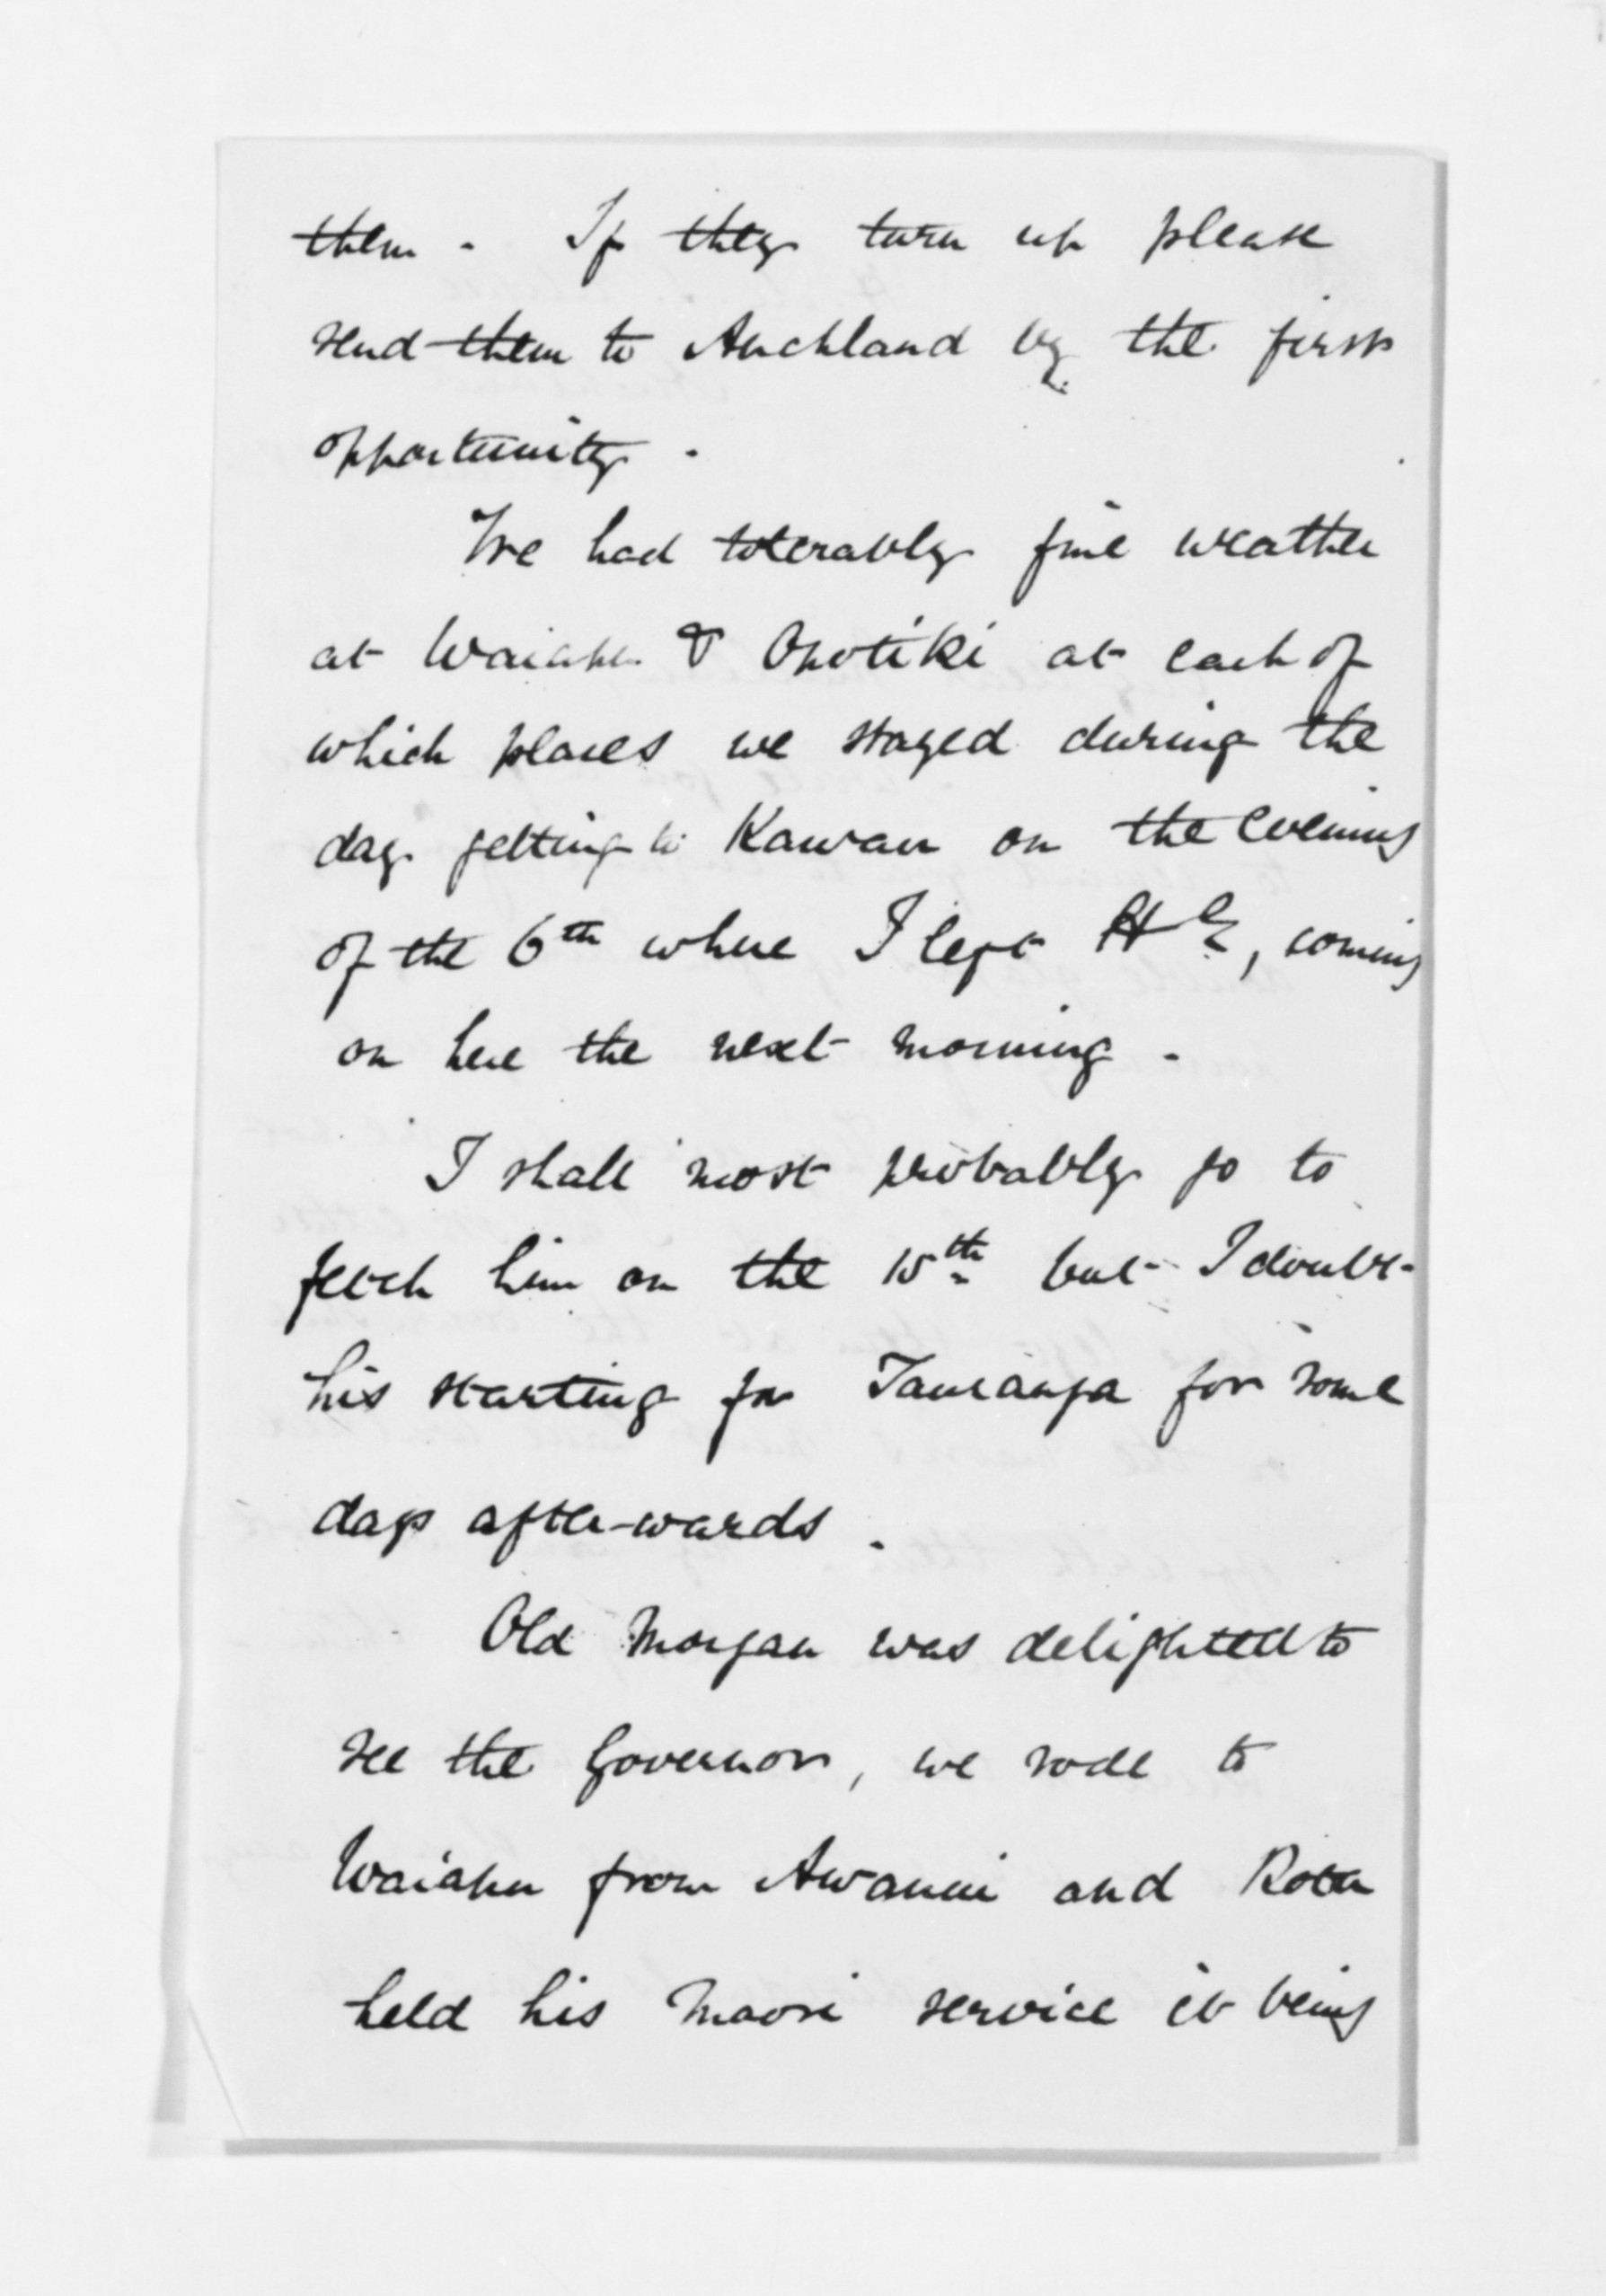 them. If they turn up please
send them to Auckland by the first
opportunity.
We had tolerably fine weather
at Waiapu & Opotiki at each of
which places we stayed during the
day getting to Kawau on the evening
of the 6th where I left H E, coming
on here the next morning.
I shall most probably go to
fetch him on the 15th but I doubt
his starting for Tauranga for some
days after-wards.
Old Morgan was delighted to
see the Governor, we rode to
Waiapu from Awanui and Rota
held his Maori service it being